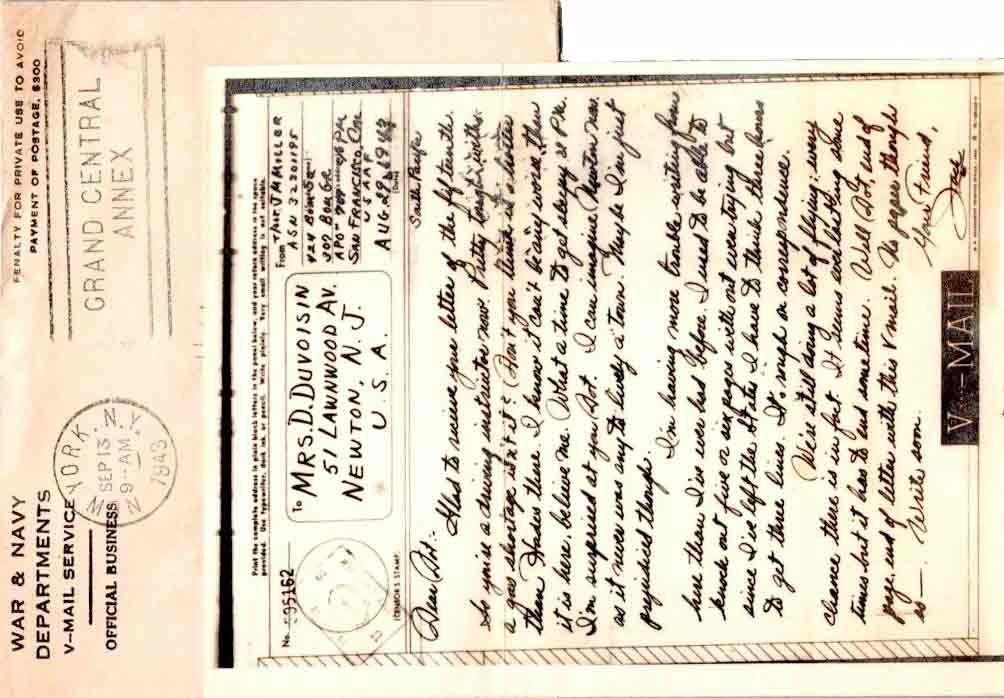 WAR & NAVY
DEPARTMENTS
V-MAIL SERVICE
OFFICIAL BUSINESS
NEW YORK, N.Y.
SEP 13
9-AM
1943
GRAND CENTRAL
ANNEX
PENALTY FOR PRIVATE USE TO AVOID
PAYMENT OF POSTAGE, $300
Print the complete address in plain block letters in the panel below, and your return address in the space
provided. Use typewriter, dark ink, or pencil. Write plainly. Very small writing is not suitable.
No.
(CENSOR'S STAMP)
To
MRS. D. DUVOISIN
51 LAWNWOOD AV.
NEWTON, N. J.
U. S. A.
From
T/SGT. J.M MILLER
ASN 32201195
424 BOM SQ.
307 BOM GR
APO 709 c/o PM
SAN FRANCISCO, CAL
USAAF
AUG 29 1943
(Date)
South Pacific
Dear Dot:-
Glad to receive your letter of the fifteenth.
So you're a driving instructor now. Pretty tough with
a gas shortage isn't it? Don't you think it's hotter
than Hades there. I know it can't be any worse than
it is here, believe me. What a time to get sleepy at PM.
I'm surprised at you Dot. I can imagine Newton now
as it never was any to lively a town. Maybe I'm just
prejudiced though.
I'm having more trouble writing from
here than I've ever had before. I used to be able to
knock out five or six pages with out even trying but
since I've left the States I have to think three hours
to get three lines. It's rough on correspondence.
We're still doing a lot of flying; every
chance there is in fact. It seems everlasting some
times but it has to end sometime. Well Dot, end of
page, end of letter with this V mail. No pages though
so — Write soon.
Your Friend,
V-MAIL